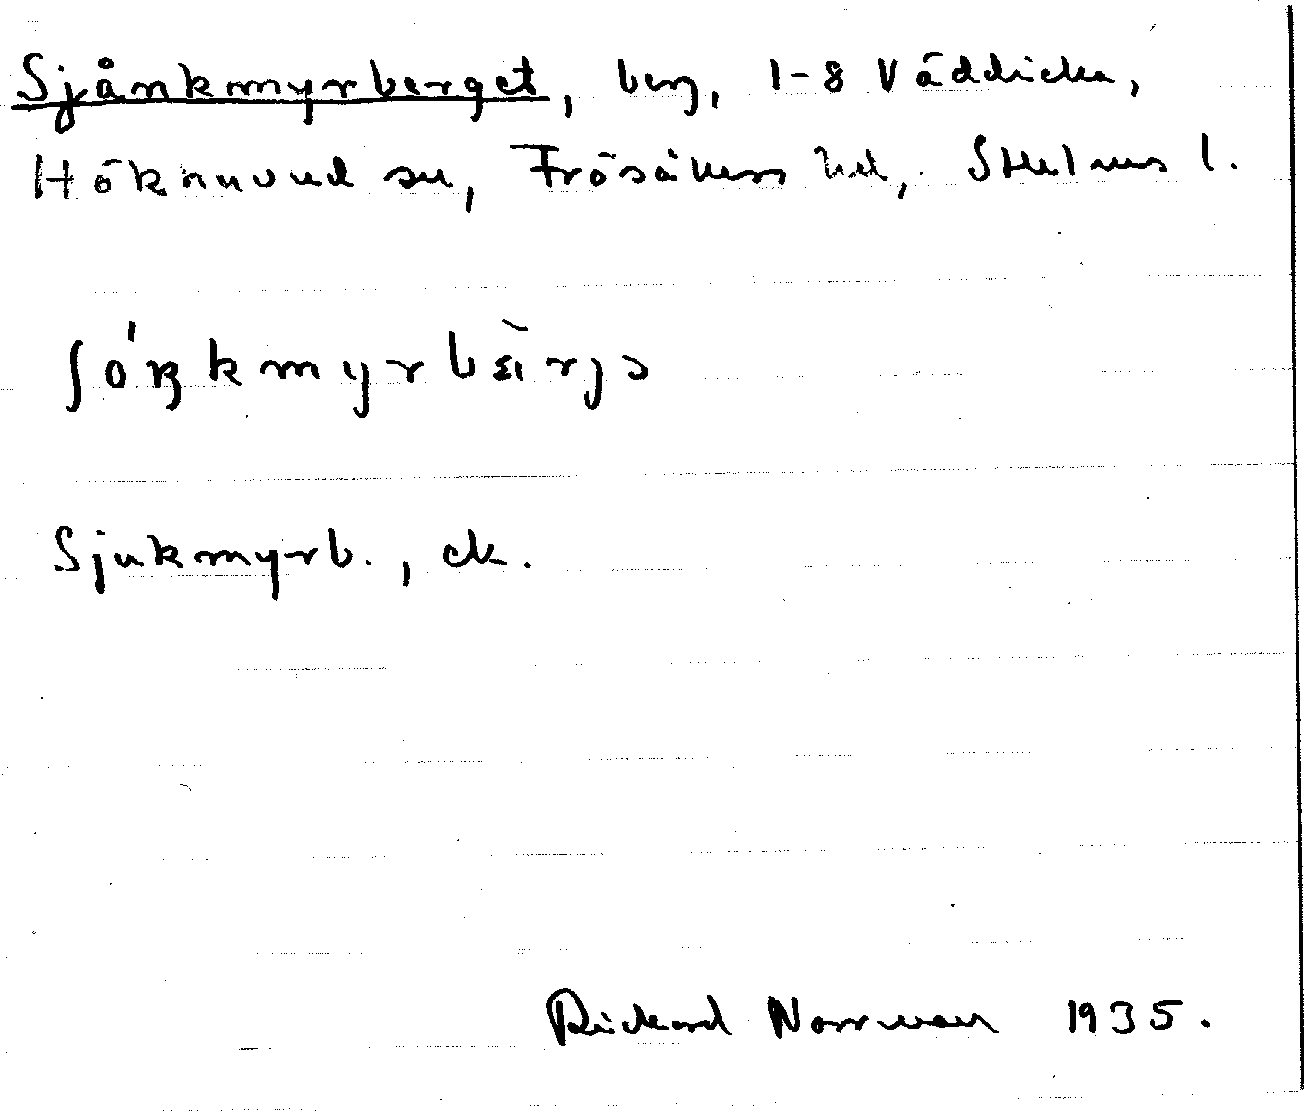 Sjånkmyrberget, berg, 1-8 Väddicka,
Hökhuvud sn, Frösåkers hd, Sthlms l.
ʃóŋkmyrbærjə
Sjukmyrb., ek.
Rickard Norrman 1935.